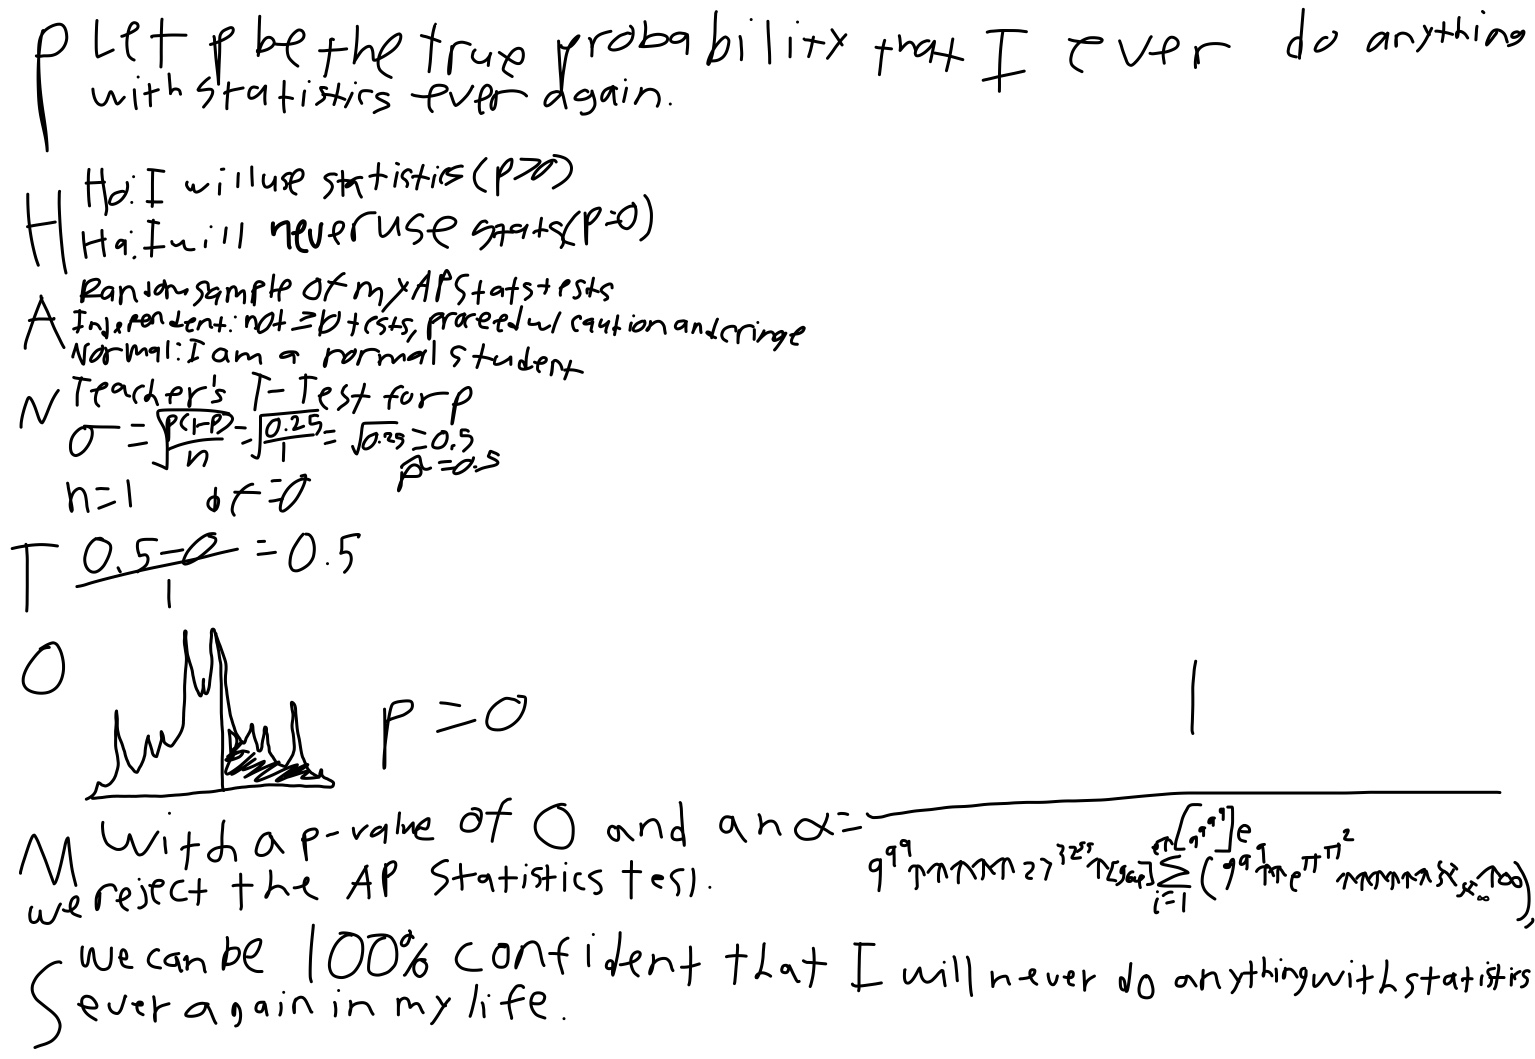 P Let p be the true probability that I ever do anything
with statistics ever again.
H Ho: I will use statistics (p>0)
Ha: I will never use stats (p=0)
A Random sample of my AP Stats tests
Independent: not ≥10 tests, proceed w/ caution and cringe
Normal: I am a normal student
N Teacher's T-Test for p
σ = √(p(1-p)/n) = √(0.25/1) = √0.25 = 0.5
p̂ = 0.5
n=1 df=0
T (0.5-0)/1 = 0.5
O p = 0
M With a p-value of 0 and an α = 1
we reject the AP Statistics test.
S We can be 100% confident that I will never do anything with statistics
ever again in my life.